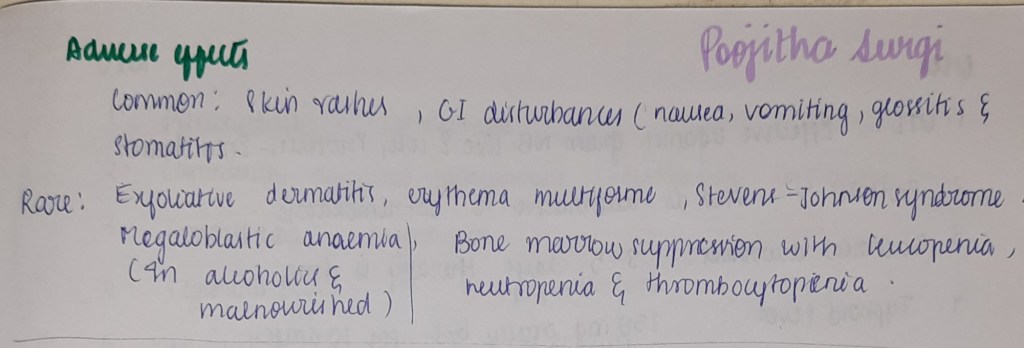 Adverse effects
Poojitha Surgi
Common: Skin rashes, GI disturbances (nausea, vomiting, glossitis &
stomatitis.
Rare: Exfoliative dermatitis, erythema multiforme, Stevens-Johnson syndrome.
Megaloblastic anaemia, Bone marrow suppression with leucopenia,
(In alcoholics & neutropenia & thrombocytopenia.
malnourished)